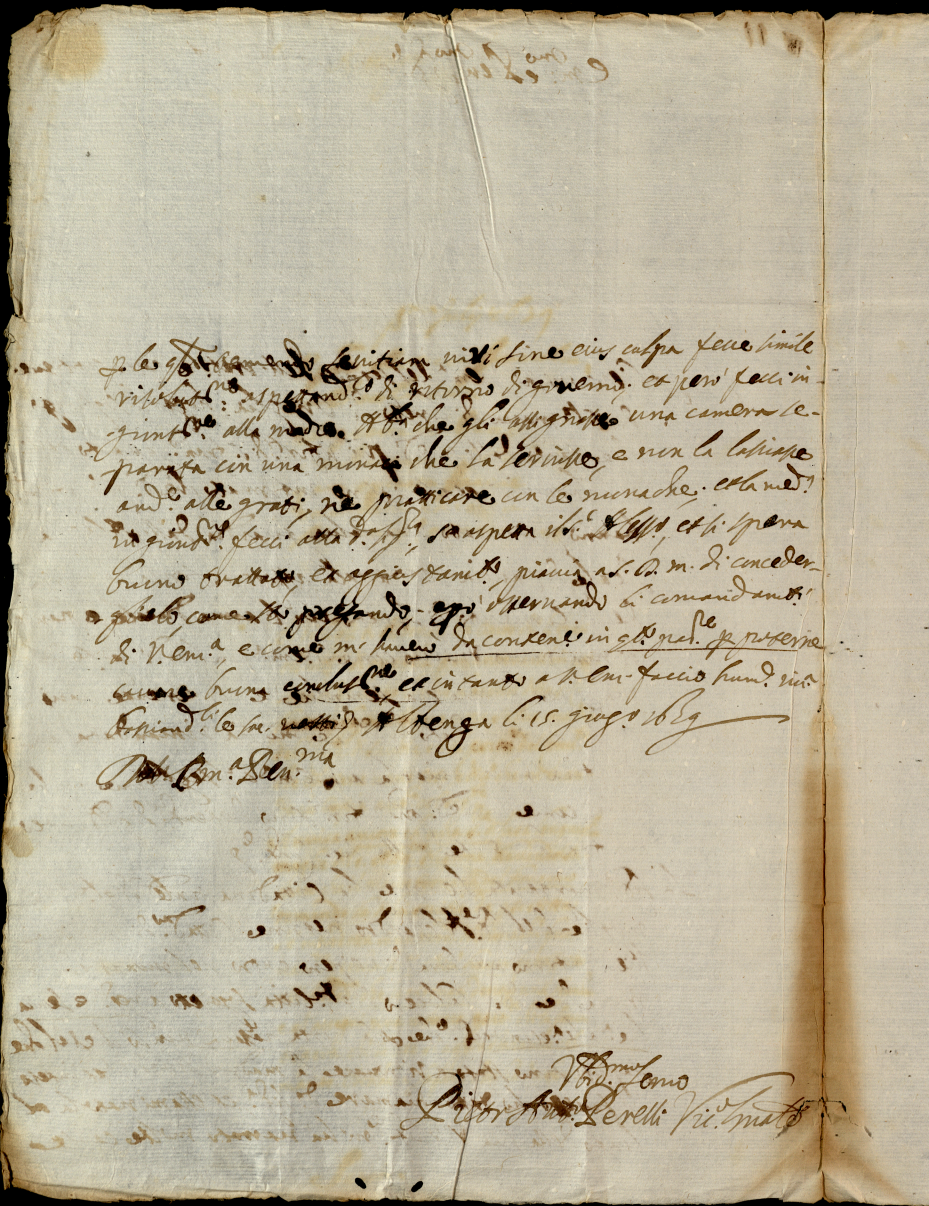 p le q.li temendo sevitiam viri sine eius culpa fece simile
risolut.ne aspettand.o di ritorno di governo, et però feci in-
giunt.ne alla madre Abb.a che gli assignasse una camera se-
parata con una monaca che la servisse, e non la lasciasse
and.e alle grati, né pratticare con le monache. et la med.a
ingiunt.ne feci alla d.a sig.a, si aspetta il S.r et si spera
buono trattato, et aggiustam.to, piaccia a S. D. M. di conceder-
glielo, come sto pregando, osservando li comandam.ti
di V. em.a, e come mi havea da contener in q.to part.re p poterne
cavare buona conclus.ne, et in tanto a V. Em. faccio hum.a riv.a
basciand.li le sac. vesti. Albenga li 15 giug.o 1659
Di V. Em.a Rev.ma
Obbd.mo Servo
Pietr Ant.o Perelli Vic.o